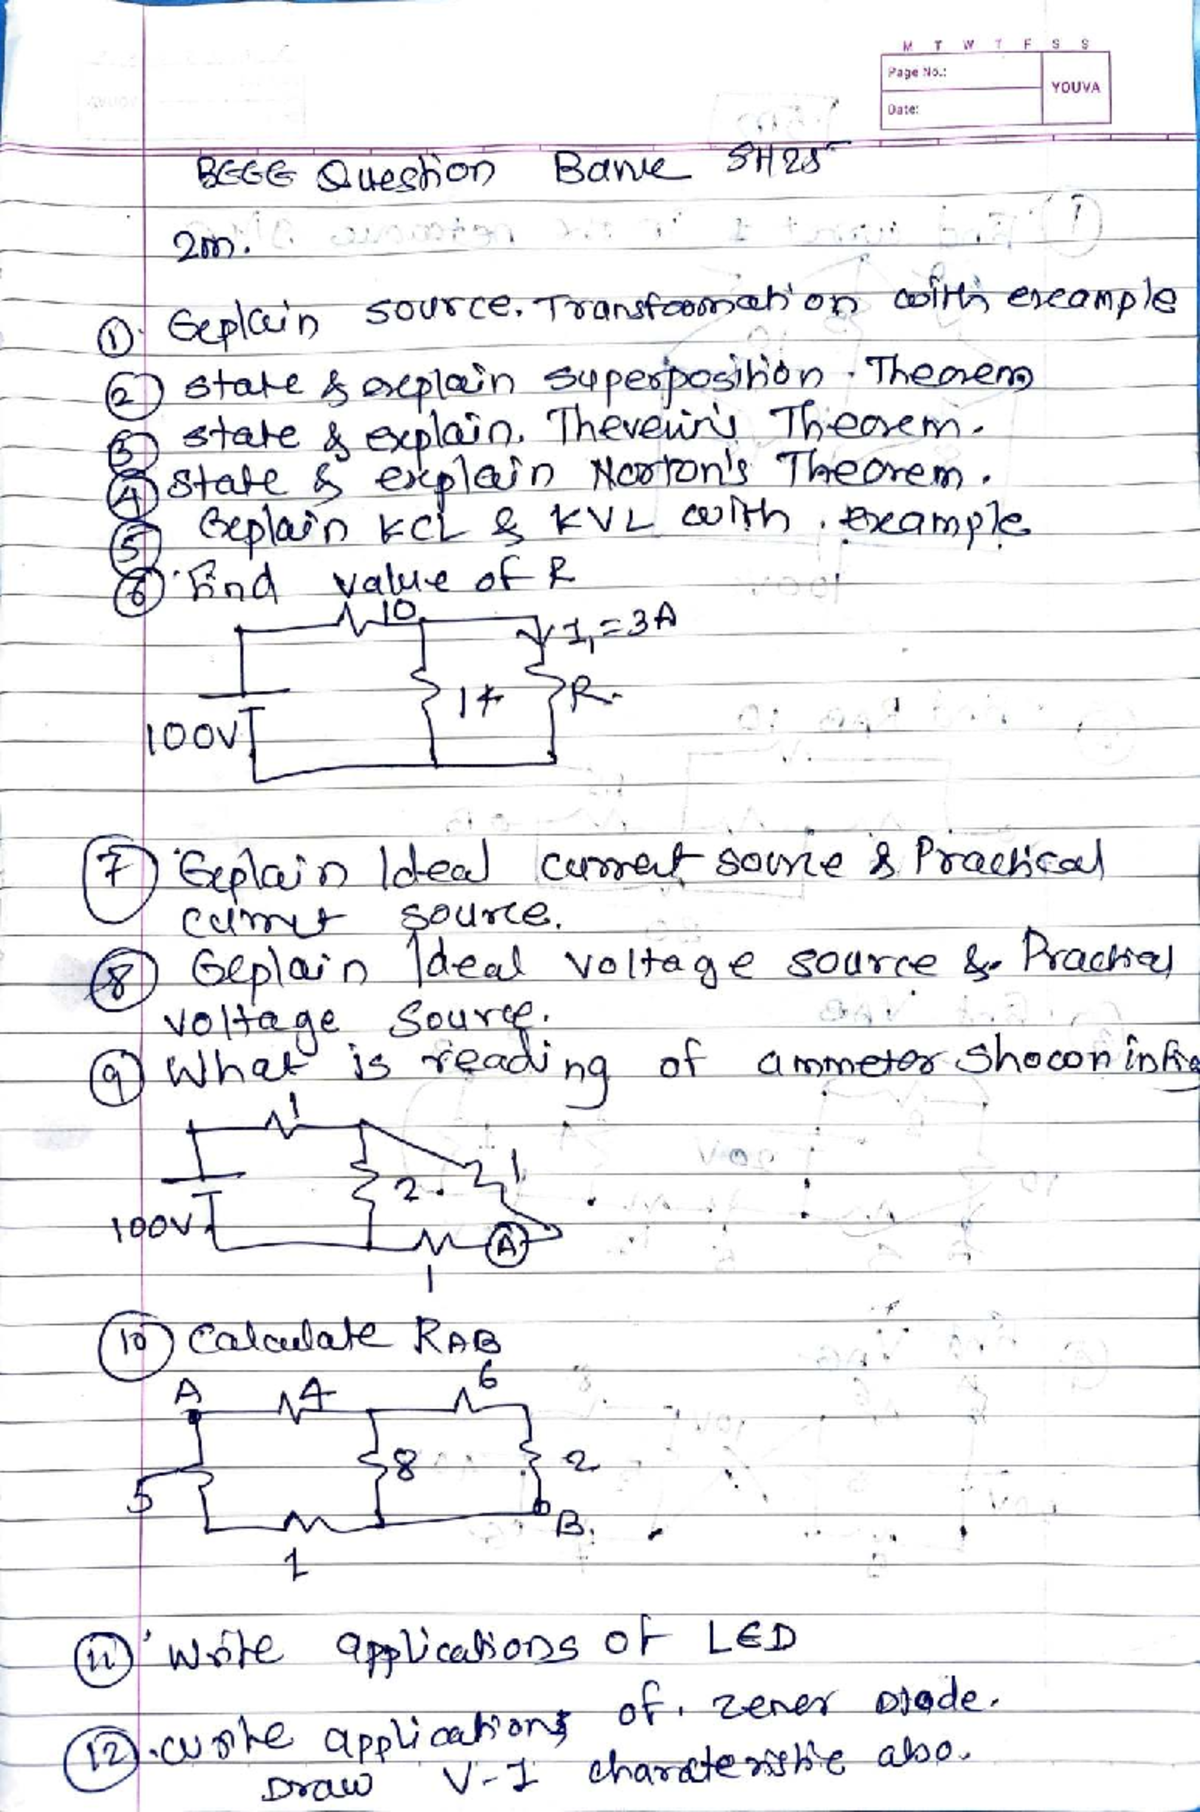 M T W T F S S
Page No.:
YOUVA
Date:
BEEE Question Bank SH25
2m.
① Explain source Transformation with example
② state & explain superposition Theorem
③ state & explain Thevenin's Theorem.
④ state & explain Norton's Theorem.
⑤ Explain KCL & KVL with example
⑥ Find value of R
10
I₁=3A
14
R
100V
⑦ Explain Ideal current source & Practical
current source.
⑧ Explain Ideal voltage source & Practical
voltage source.
⑨ What is reading of ammeter shown in fig
1
2
1
100V
A
1
⑩ Calculate RAB
A
4
6
8
2
5
B.
1
⑪ Write applications of LED
⑫ write applications of zener Diode.
Draw V-I charateristic also.